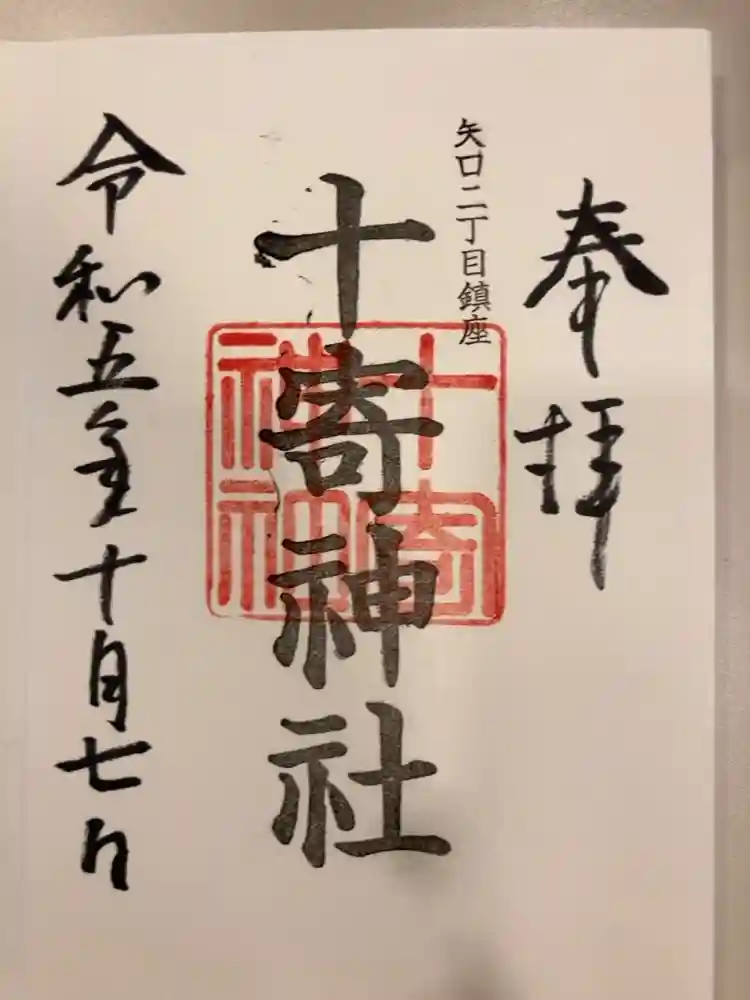 奉拝
矢口二丁目鎮座
十寄神社
十寄
神社
令和五年十月七日